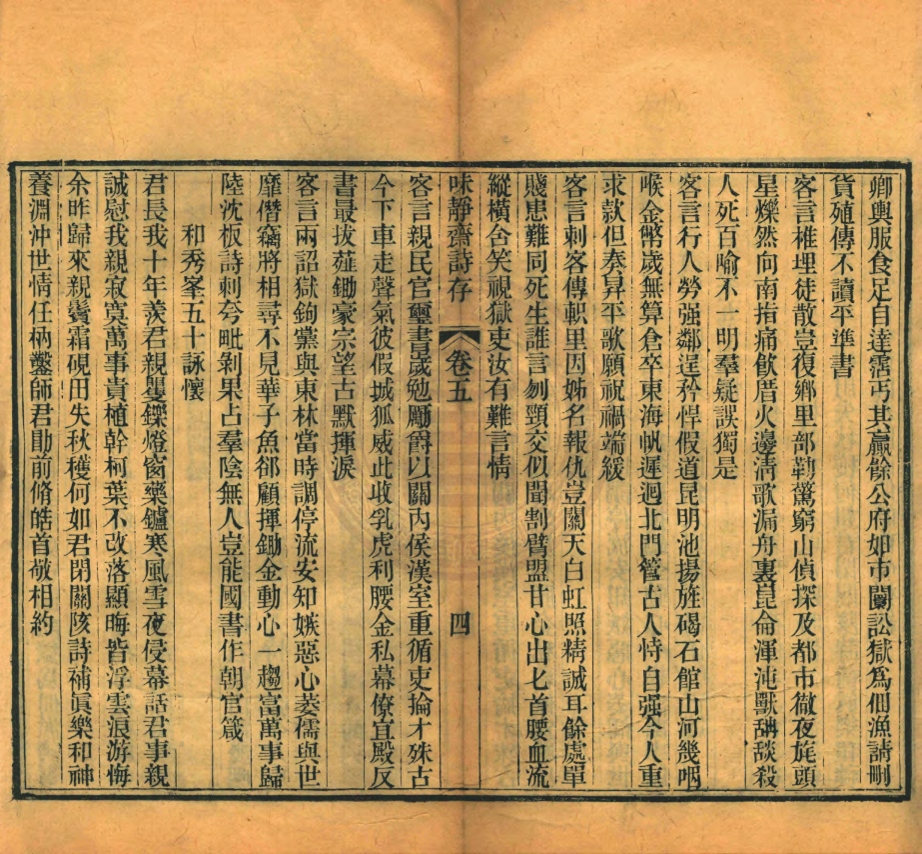 卿輿服食足自達霑丐其贏餘公府如市闤訟獄為佃漁詩刪
貨殖傳不讀平準書
客言椎埋徒散豈復鄉里部勒篤窮山偵探及都市徹夜旄頭
星爍然向南指痛飲厝火邊清歌漏舟裏崑侖渾沌獸談殺
人死百喻不一明羣疑誤獨是
客言行人勞强鄰逞矜悍假道昆明池揚旌碣石館山河幾咽
喉金幣歲無算倉卒東海帆遲迴北門管古人恃自强今人重
求款但奏昇平歌願祝禍端緩
客言刺客傳軹里因姊名報仇豈關天白虹照精誠耳餘處單
賤患難同死生誰言刎頸交似聞割臂盟甘心出匕首腰血流
縱橫含笑視獄吏汝有難言情
味靜齋詩存 卷五 四
客言親民官璽書歲勉勵爵以關內侯漢室重循吏掄才殊古
今下車走聲氣彼假城狐威此收乳虎利腰金私幕僚宜殿反
書最拔薤鋤豪宗望古默揮淚
客言兩詔獄鉤黨與東林當時調停流安知嫉惡心萎儒與世
靡僭竊將相尋不見華子魚郤顧揮鋤金動心一趨富萬事歸
陸沈板詩刺夸毗剝果占羣陰無人豈能國書作朝官箴
和秀峯五十詠懷
君長我十年羨君親矍鑠燈窗藥鑪寒風雪夜侵幕話君事親
誠慰我親寂寞萬事貴植幹柯葉不改落顯晦皆浮雲浪游悔
余昨歸來親鬢霜硯田失秋穫何如君閉關陔詩補眞樂和神
養淵沖世情任枘鑿師君勖前脩皓首敬相約